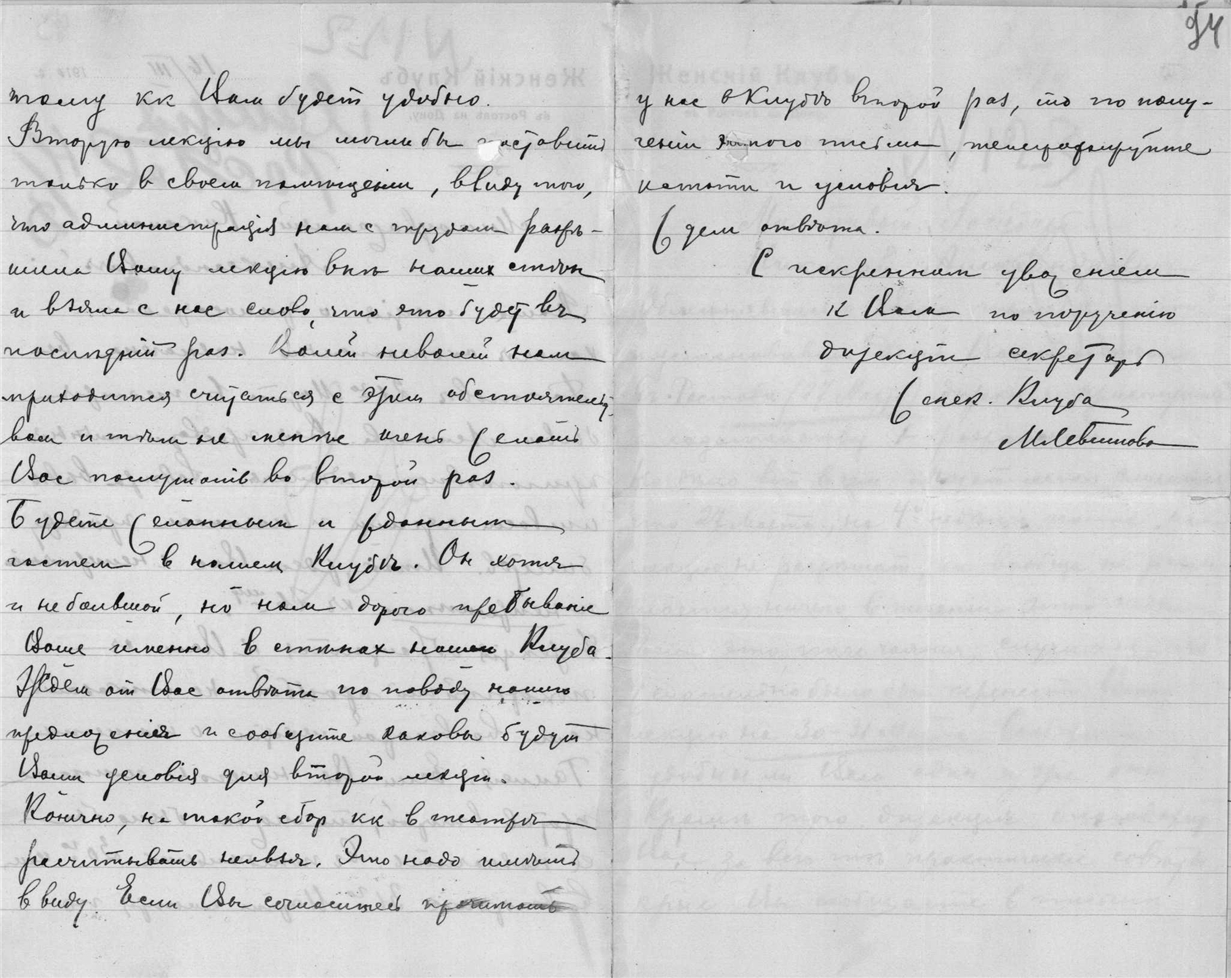 тому кк Вам будет удобно.
Вторую лекцію мы могли бы поставить
только в своем помещеніи, ввиду того,
что администрація нам с трудом разрѣ-
шила Вашу лекцію внѣ наших стѣн
и взяла с нас слово, что это будет в
послѣдній раз. Волей неволей нам
приходится считаться с этим обстоятельст
вом и тѣм не менѣе очень желать
Вас послушать во второй раз.
Будете желанным и жданным
гостем в нашем Клубѣ. Он хотя
и небольшой, но нам дорого пребываніе
Ваше именно в стѣнах нашего Клуба.
Ждем от Вас отвѣта по поводу нашего
предложенія и сообщите каковы будут
Ваши условія для второй лекціи.
Конечно, на такой сбор кк в театрѣ
расчитывать нельзя. Это надо имѣть
в виду. Если Вы согласитесь прочитать
94
у нас в Клубѣ второй раз, то по полу-
ченіи этого письма, телеграфируйте
кстати и условія.
Ждем отвѣта.
С искренним уваженіем
к Вам по порученію
дирекціи секретарь
Женск. Клуба